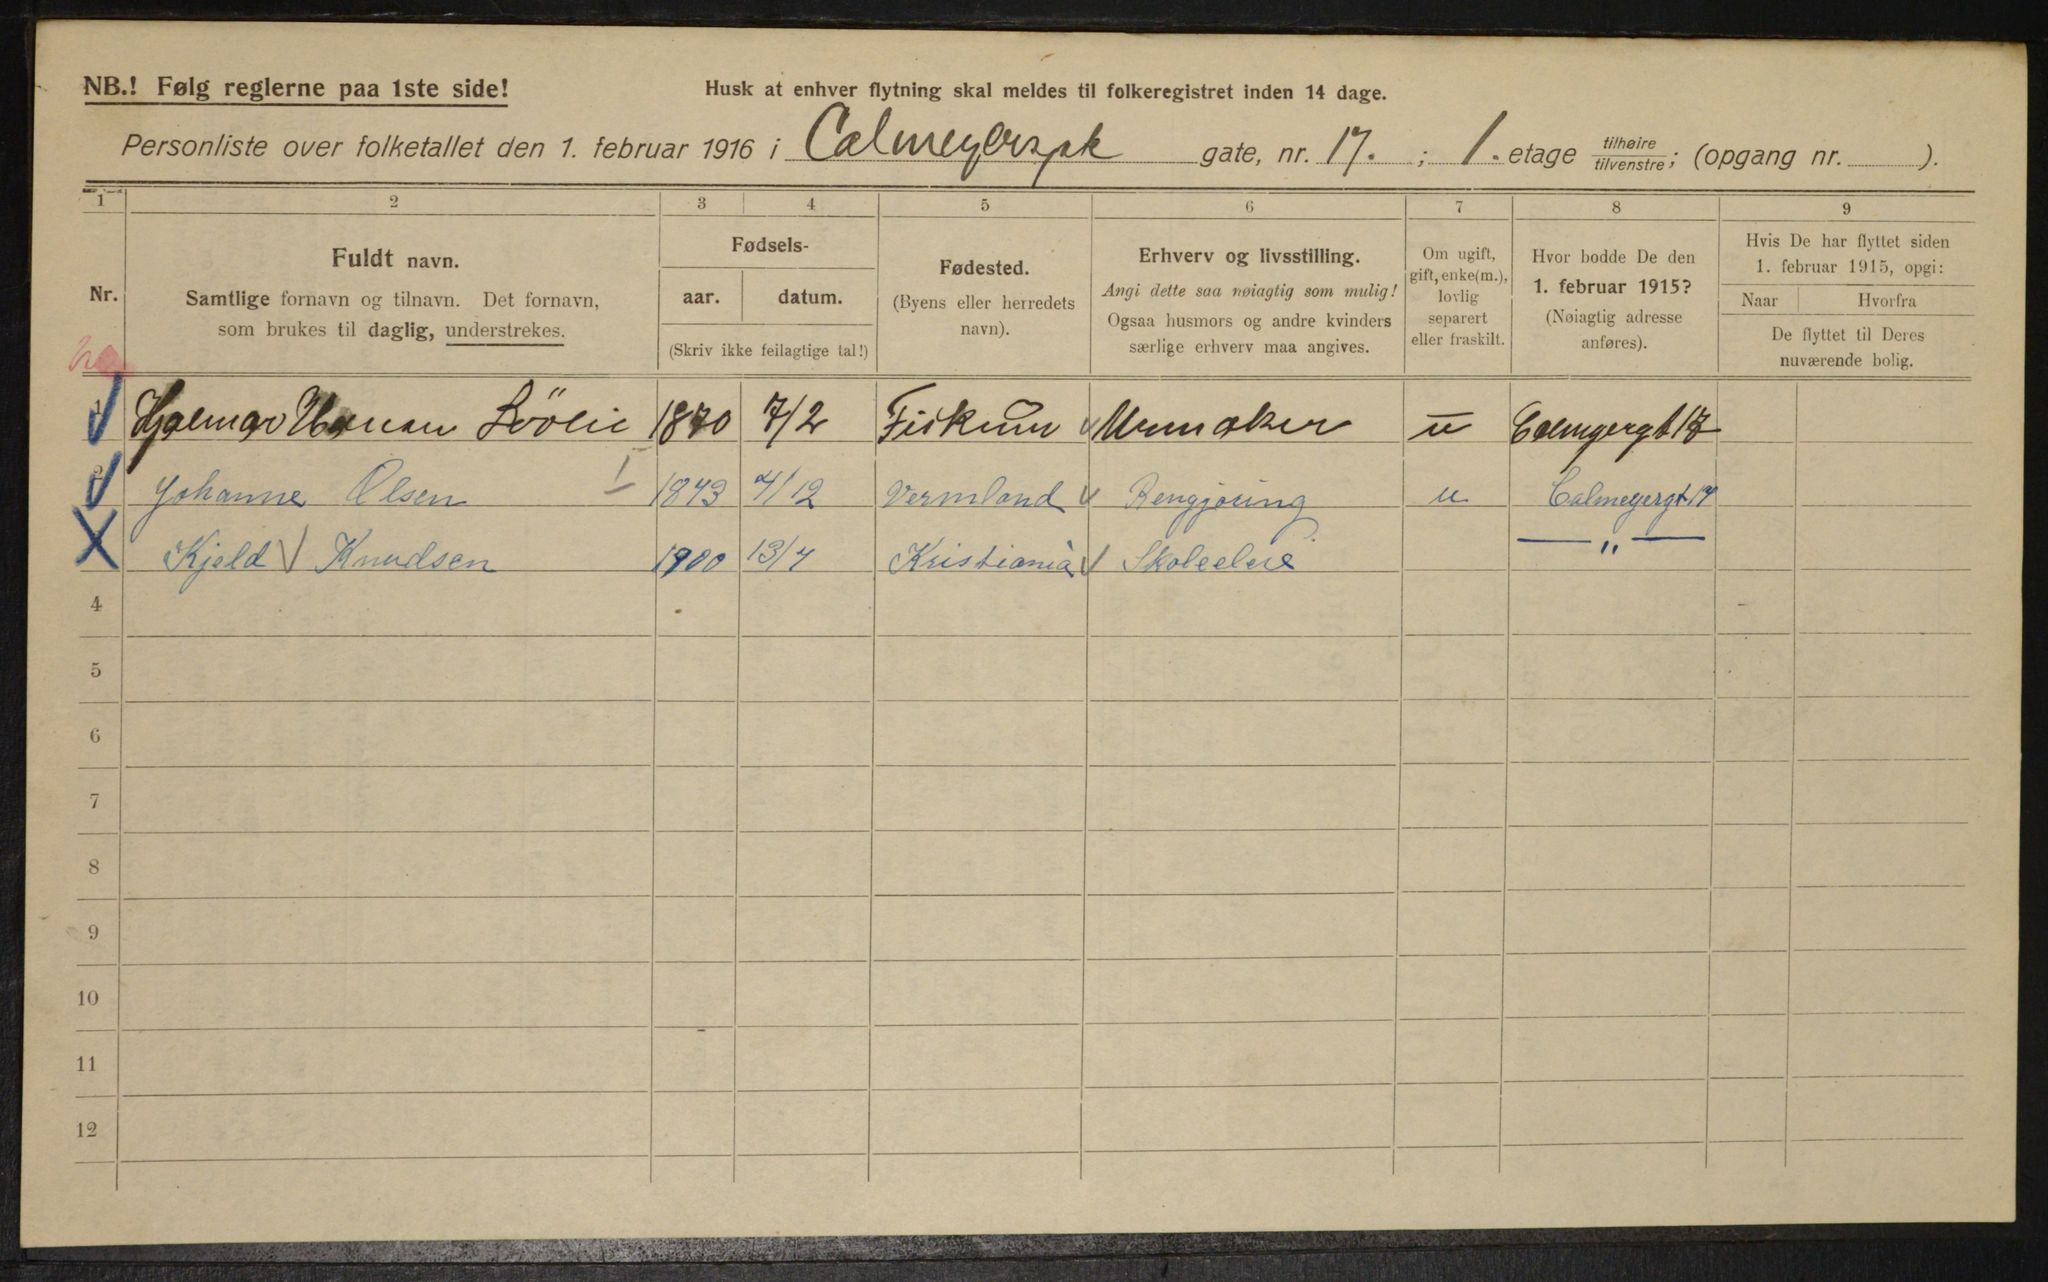 NB.! Følg reglerne paa 1ste side!
Husk at enhver flytning skal meldes til folkeregistret inden 14 dage.
Personliste over folketallet den 1. februar 1916 i Calmeyersgt gate, nr. 17. ; 1. etage tilhøire tilvenstre; (opgang nr. ).
1 2 3 4 5 6 7 8 9
Nr.
Fuldt navn.
Samtlige fornavn og tilnavn. Det fornavn,
som brukes til daglig, understrekes.
Fødsels-
aar. datum.
(Skriv ikke feilagtige tal!)
Fødested.
(Byens eller herredets
navn).
Erhverv og livsstilling.
Angi dette saa nøiagtig som mulig!
Ogsaa husmors og andre kvinders
særlige erhverv maa angives.
Om ugift,
gift, enke(m.),
lovlig
separert
eller fraskilt.
Hvor bodde De den
1. februar 1915?
(Nøiagtig adresse
anføres).
Hvis De har flyttet siden
1. februar 1915, opgi:
Naar Hvorfra
De flyttet til Deres
nuværende bolig.
1 Hjalmar 1870 7/2 Fiskum Urmaker u Calmgergt 17
2 Johanne Olsen 1843 4/12 Vermland Rengjøring u Calmeyergt 17
Kjeld Knudsen 1900 13/7 Kristiania Skoleelev — " —
4
5
6
7
8
9
10
11
12